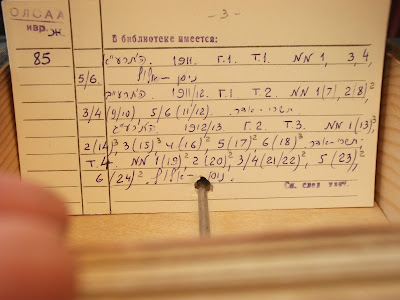 - 3 -
ОЛСАА
ивр. ж.
В библиотеке имеется:
85
ה'תרע"א. 1911. Г.1. Т.1. NN 1, 3/4,
5/6. ניסן - אלול
ה'תרע"ב. 1911/12. Г.1. Т.2. NN 1(7), 2(8)²
3/4(9/10), 5/6(11/12). תשרי - אדר.
ה'תרע"ג. 1912/13. Г.2. Т.3. NN 1(13),³
2(14)³ 3(15)³ 4(16)², 5(17)² 6(18)³. תשרי - אדר.
Т.4. NN 1(19)² 2(20)², 3/4(21/22)², 5(23),²
6(24)². ניסן - אלול.
См. след. карт.